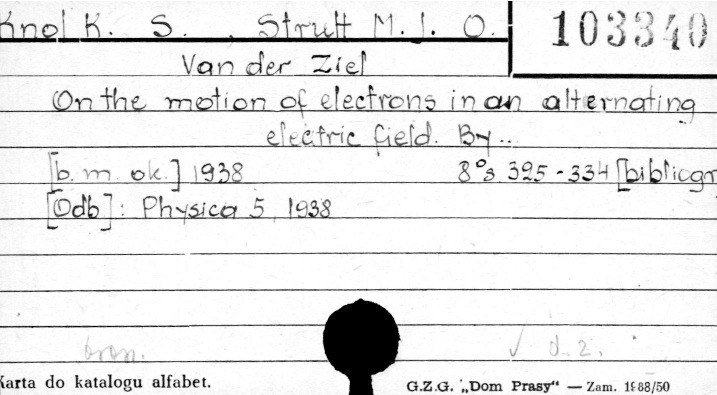 Knol K. S. , Strutt M. J. O. 103340
Van der Ziel
On the motion of electrons in an alternating
electric field. By...
[b. m. ok.] 1938 8°s 325-334 [bibliogr
[Odb]: Physica 5, 1938
bron. √ d. 2.
Karta do katalogu alfabet. G.Z.G. „Dom Prasy" — Zam. 1988/50